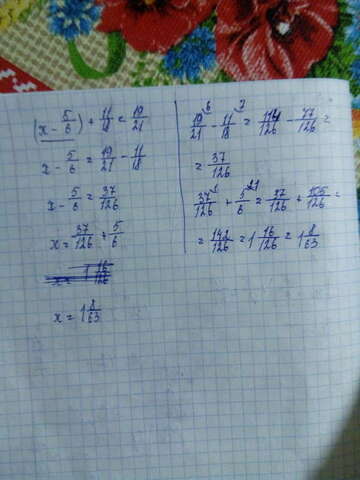 (x - 5/6) + 11/18 = 19/21
x - 5/6 = 19/21 - 11/18
x - 5/6 = 37/126
x = 37/126 + 5/6
x = 1 16/126
x = 1 8/63
19/21 - 11/18 = 114/126 - 77/126 =
= 37/126
37/126 + 5/6 = 37/126 + 105/126 =
= 142/126 = 1 16/126 = 1 8/63